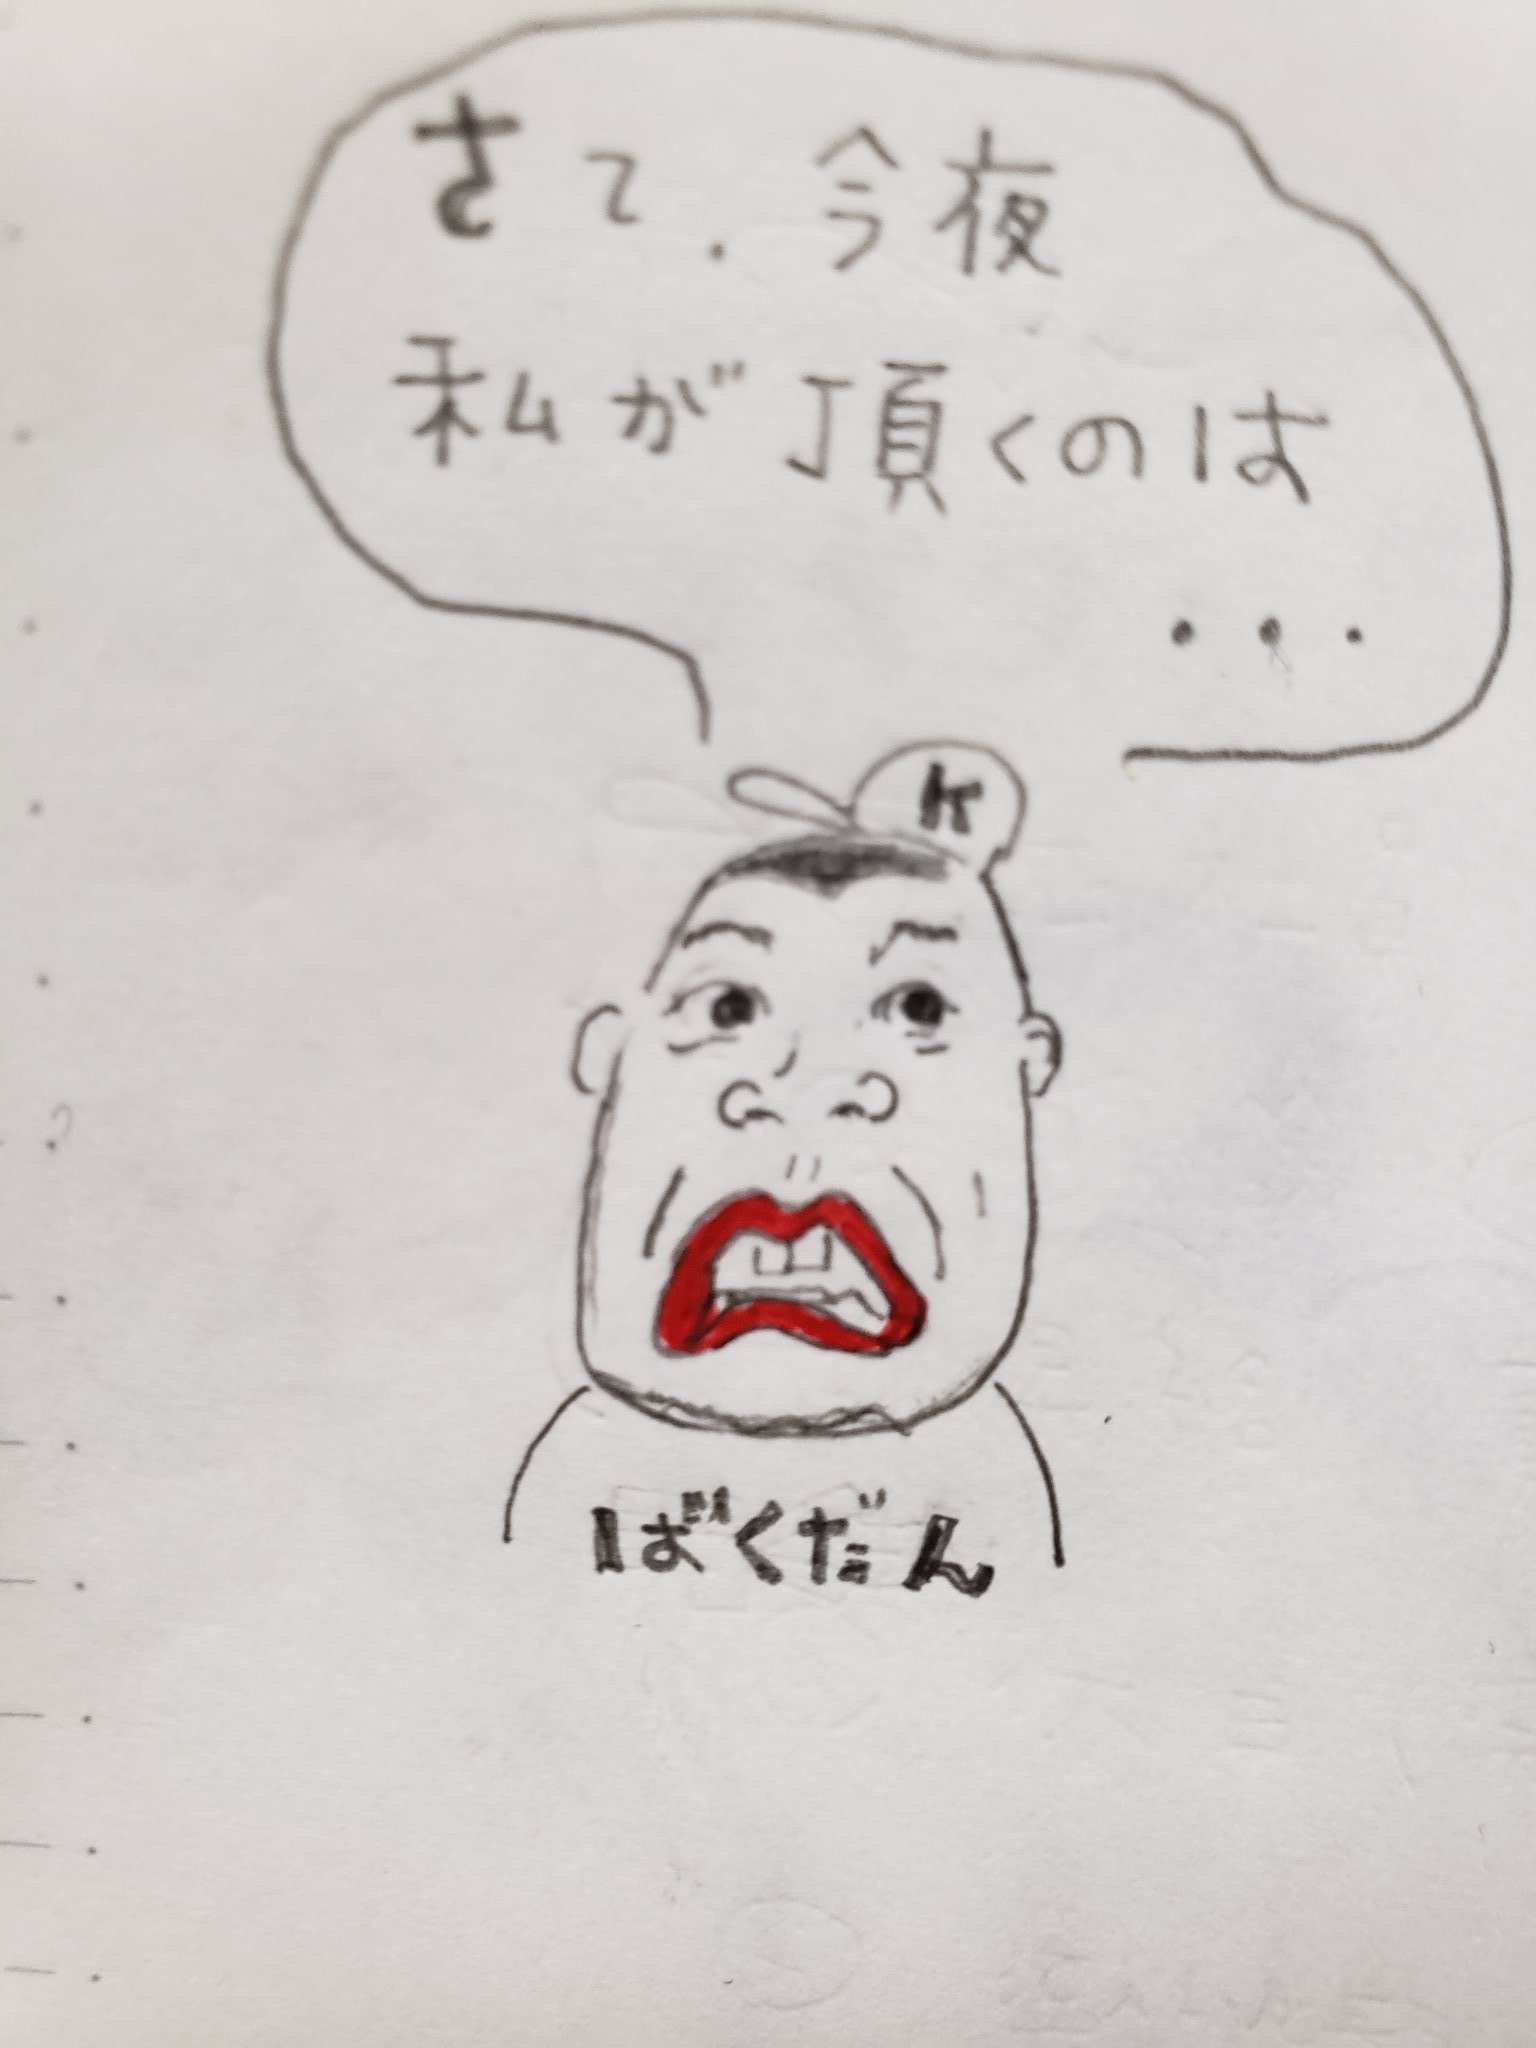 さて、今夜
私が頂くのは
・・・
K
ばくだん